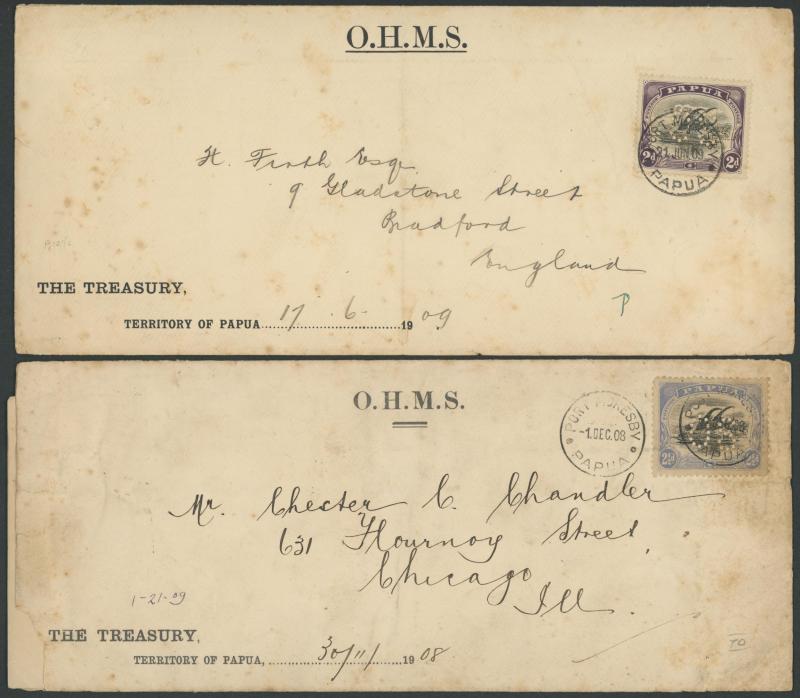 O.H.M.S.
PAPUA
2d 2d
PORT MORESBY
21 JUN 09
PAPUA
H. Firth Esq.
9 Gladstone Street
Bradford
England
THE TREASURY,
TERRITORY OF PAPUA 17 . 6 . 1909
O.H.M.S.
PORT MORESBY
-1.DEC.08
PAPUA
PAPUA
PAPUA
Mr. Chester C. Chandler
631 Flournoy Street,
Chicago
Ill.
1-21-09
THE TREASURY,
TERRITORY OF PAPUA, 30/11/ 1908